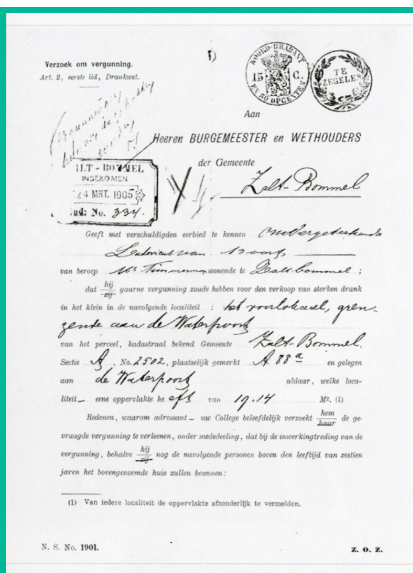 Verzoek om vergunning.
Art. 2, eerste lid, Drankwet.
NOORD-BRABANT
15 C.
EN 50 OPCENTEN
TE
ZEGELEN
Aan
Heeren BURGEMEESTER en WETHOUDERS
der Gemeente
Zalt-Bommel
ALT-BOMMEL
INGEKOMEN
24 MRT. 1905
No. 334.
Geeft met verschuldigden eerbied te kennen Ondergeteekende
van
van beroep Mr Timmerman wonende te Zaltbommel ;
dat hij
zij gaarne vergunning zoude hebben voor den verkoop van sterken drank
in het klein in de navolgende localiteit : het voorlokaal, gren-
zende aan de Waterpoort
van het perceel, kadastraal bekend Gemeente Zalt-Bommel.
Sectie A, No. 2502, plaatselijk gemerkt A 88a en gelegen
aan de Waterpoort aldaar, welke loca-
liteit eene oppervlakte heeft van 19.14 M². (1)
Redenen, waarom adressant uw College beleefdelijk verzoekt hem
haar de ge-
vraagde vergunning te verleenen, onder mededeeling, dat bij de inwerkingtreding van de
vergunning, behalve hij
zij nog de navolgende personen boven den leeftijd van zestien
jaren het bovengenoemde huis zullen bewonen :
(1) Van iedere localiteit de oppervlakte afzonderlijk te vermelden.
N. S. No. 1901.
Z. O. Z.